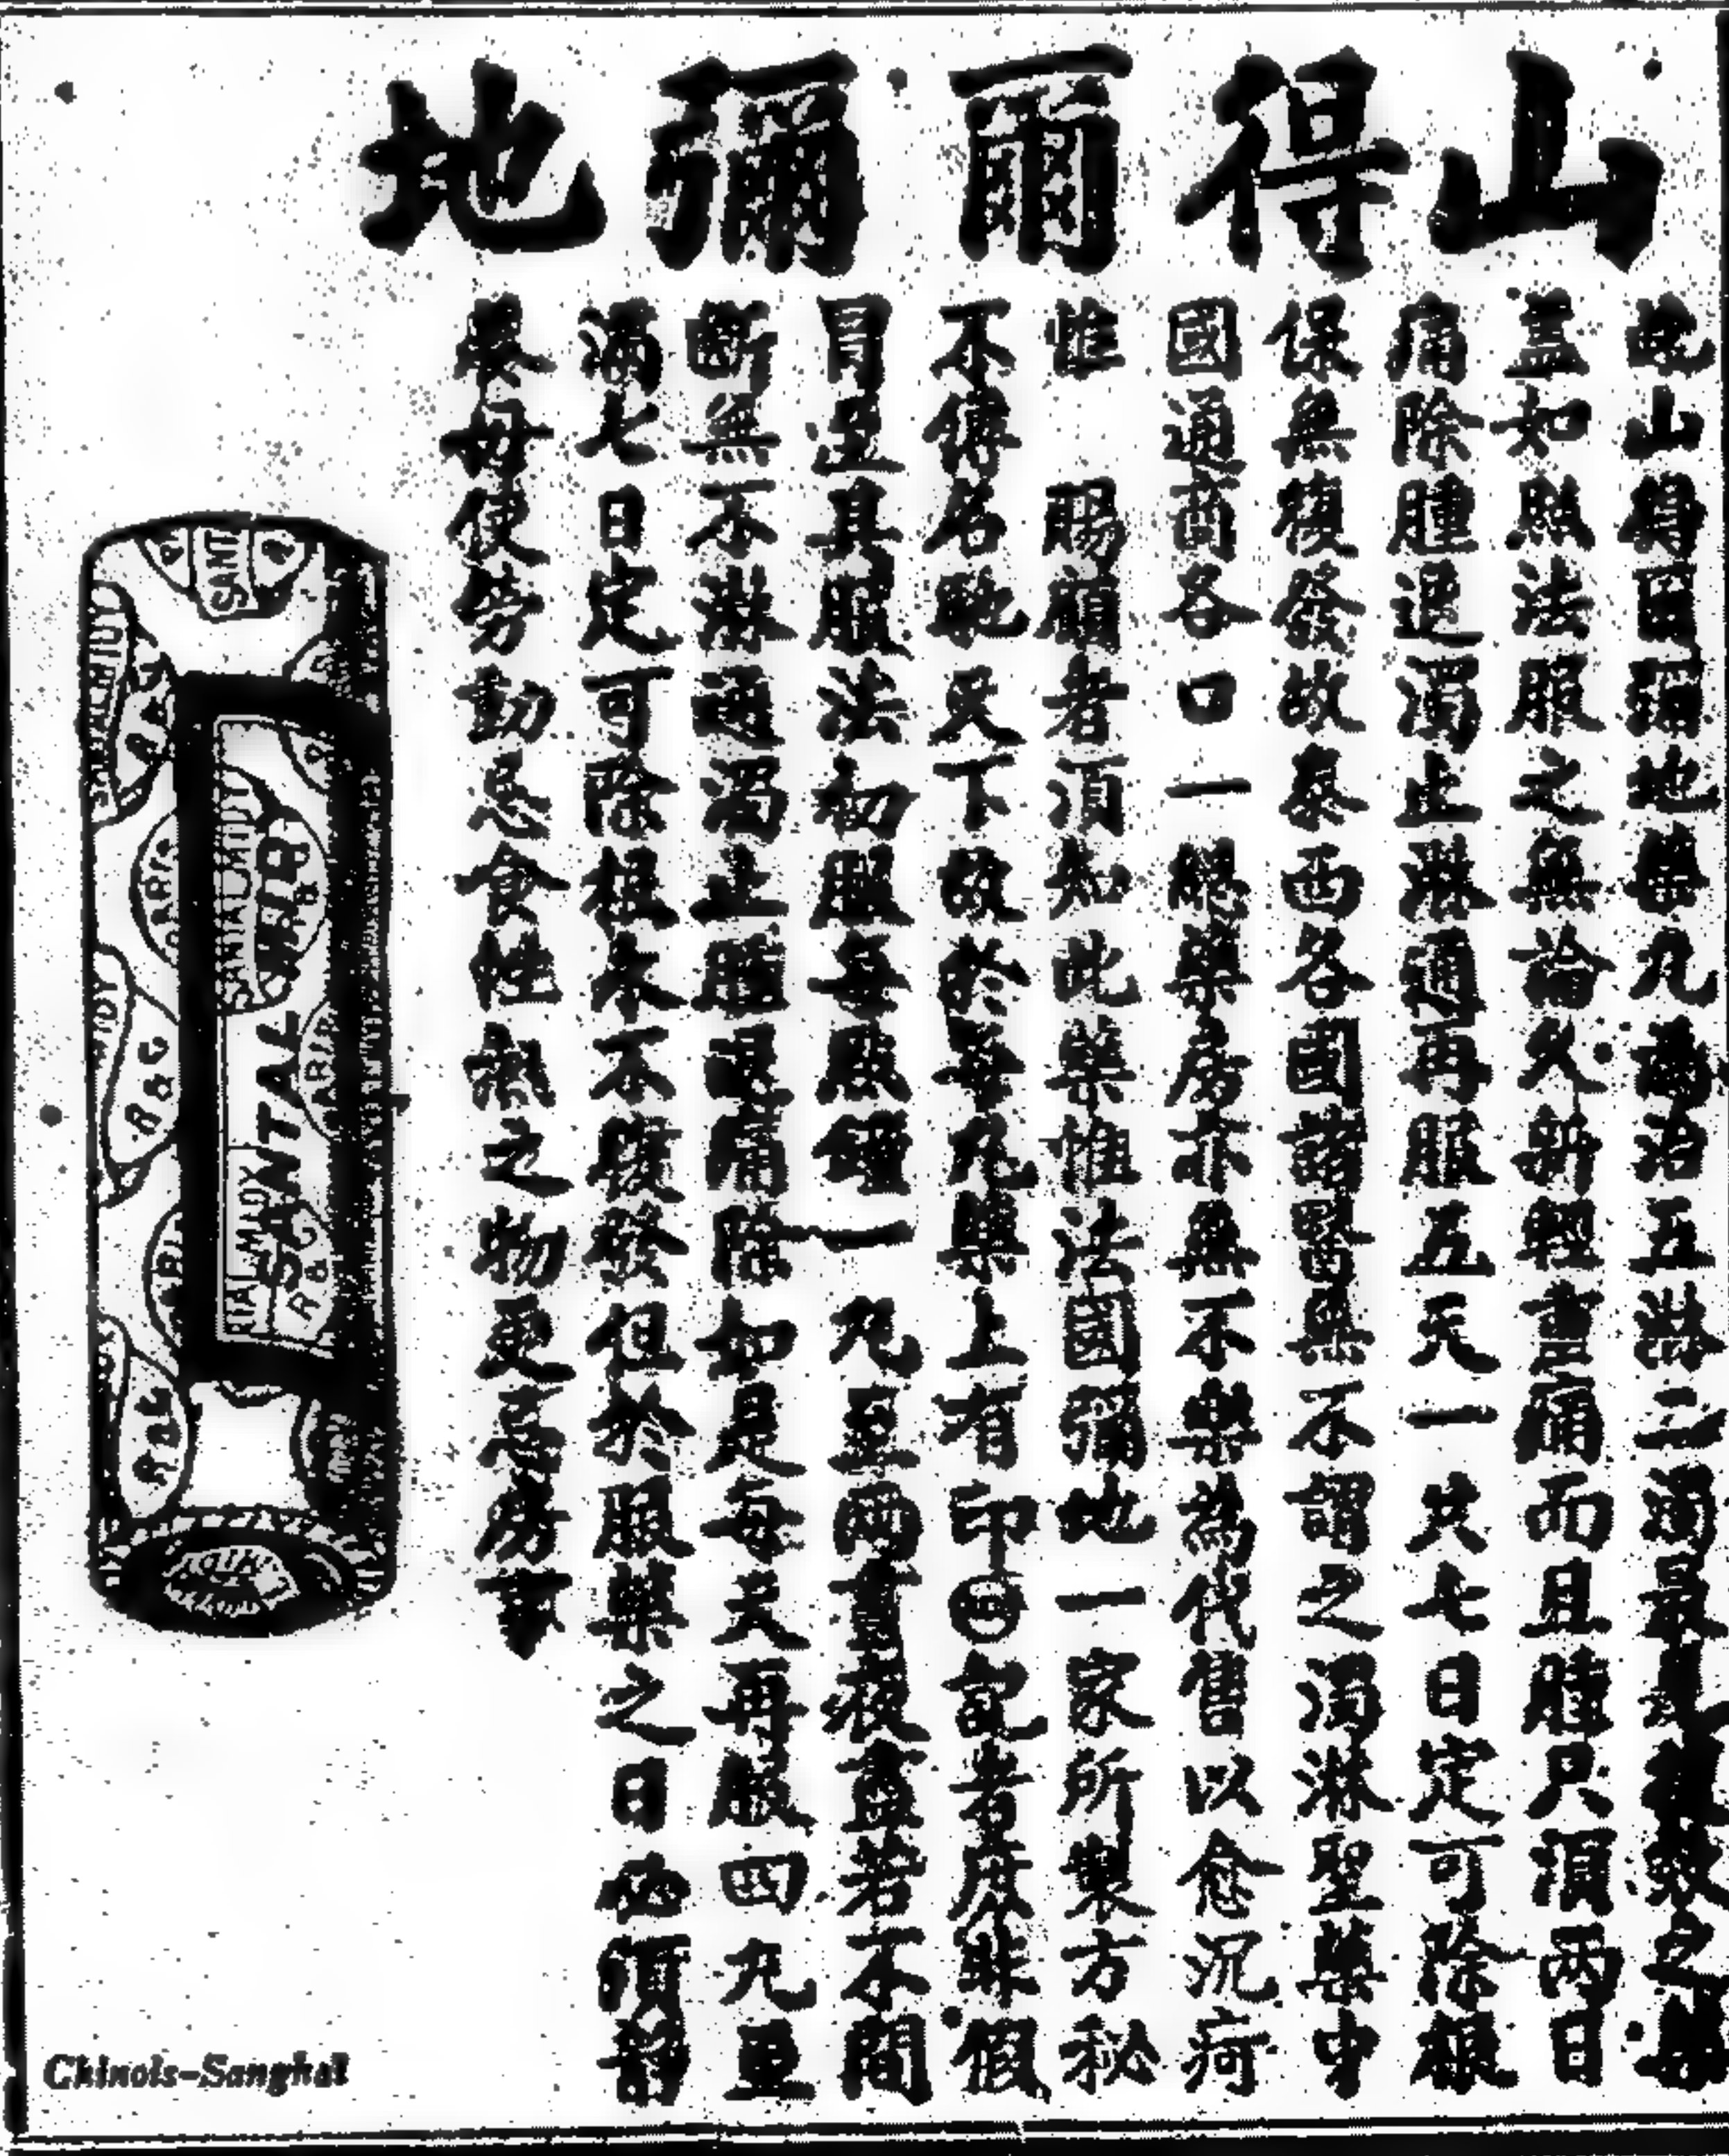 山得爾彌地
山得爾彌地藥丸 治五淋二濁最 效之藥
蓋如照法服之無論久新輕重痛而且腫只須兩日
痛除腫退濁止淋通再服五天一共七日定可除根
保無複發故泰西各國諸醫無不謂之濁淋聖藥中
國通商各口一 藥房亦無不樂為代售以愈沉疴
惟 賜顧者須知此藥惟法國彌地一家所製方秘
不傳名馳天下故於每丸藥上有印 記者庶非假
冒是其服法初服每點鐘一丸至兩晝夜 若不間
斷無不淋通濁止腫 痛除如是每天再服四丸至
滿七日定可除根本不復發但於服藥之日必須靜
養毋使勞動忌食性熱之物更忌房事
SANTAL MIDY
SANTAL
R&C
PARIS
Chinois-Sanghai